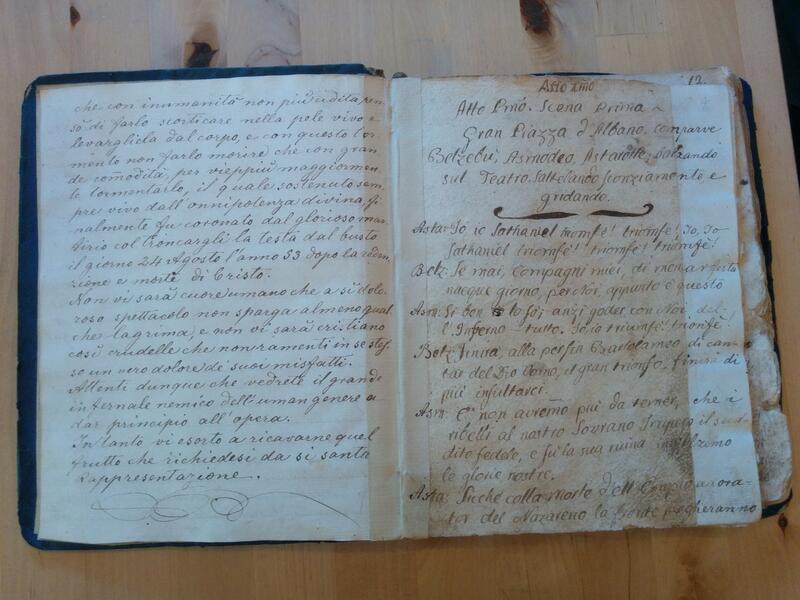 che con inumanità non più udita, pen
sò di farlo scorticare nella pele vivo e
levargliela dal corpo, e con questo tor
mento non farlo morire che con gran
de comodità, per vieppiù maggiormen
te tormentarlo, il quale sostenuto sem
pre vivo dall'onnipotenza divina, fi
nalmente fu coronato dal glorioso mar
tirio col troncargli la testa dal busto
il giorno 24 Agosto l'anno 53 dopo la reden
zione e morte di Cristo.
Non vi sarà cuore umano che a si dolo
roso spettacolo non sparga almeno qual
che lagrima, e non vi sarà cristiano
così crudelle che non ramenti in se stes
so un vero dolore de' suoi misfatti.
Attenti dunque che vedrete il grande
infernale nemico dell'uman genere a
dar principio all'opera.
Intanto vi esorto a ricavarne quel
frutto che richiedesi da si santa
Rappresentazione.
12.
Atto Pmo
Atto Pmo. Scena Prima
Gran Piazza d'Albano, comparve
Belzebù, Asmodeo, Astarotte, balzando
sul Teatro. Saltellando sconziamente e
gridando.
Asta: Io, io Sathaniel triomfe! triomfe! Io, Io
Sathaniel triomfe! triomfe! triomfe!
Belz: Se mai, Compagni miei, di
nacque giorno, per Noi, appunto è questo
Asm: Si ben lo so; anzi goder con Noi del-
l'Inferno tutto. Io, io triumfe! triomfe!
Belz: Finirà, alla perfin Bartolameo di can
tar del Dio Uomo, il gran trionfo, finirà di
più insultarci.
Asm: E non avremo più da temer, che i
ribelli al nostro Sovrano Impero il sud
dito fedele, e fù la sua ruina
le glorie nostre.
Asta: Sicche colla morte dell'Empio adora-
tor del Nazareno la fronte pregheranno